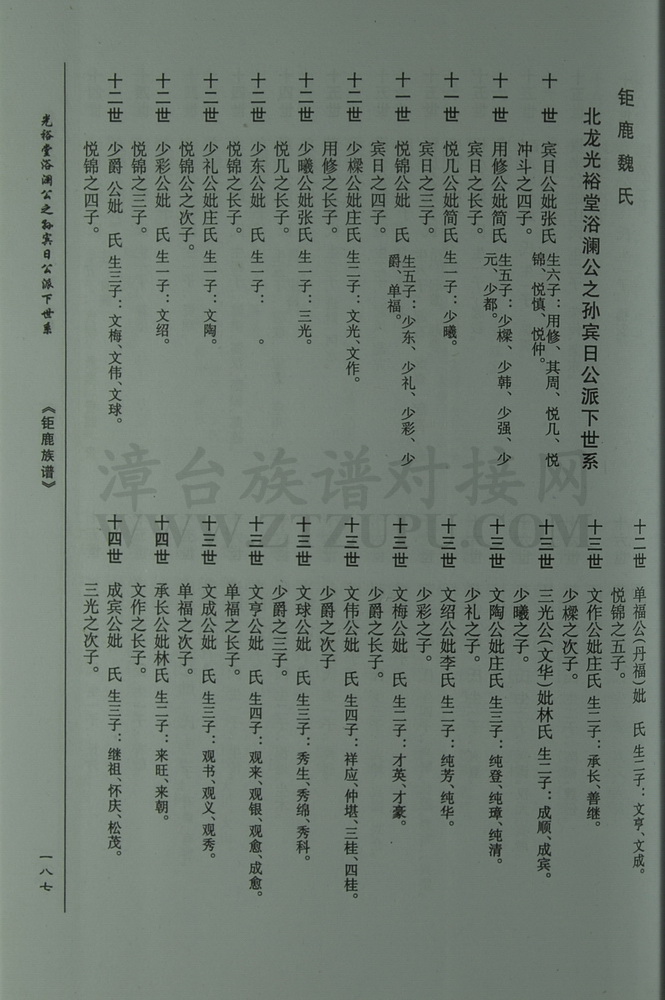 钜鹿魏氏
北龙光裕堂浴澜公之孙宾日公派下世系
十世 宾日公妣张氏 生六子：用修、其周、悦几、悦锦、悦慎、悦仲。
冲斗之四子。
十一世 用修公妣简氏 生五子：少樑、少韩、少强、少元、少都。
宾日之长子。
十一世 悦几公妣简氏 生一子：少曦。
宾日之三子。
十一世 悦锦公妣 氏 生五子：少东、少礼、少彩、少爵、单福。
宾日之四子。
十二世 少樑公妣庄氏 生二子：文光、文作。
用修之长子。
十二世 少曦公妣张氏 生一子：三光。
悦几之长子。
十二世 少东公妣 氏 生一子： 。
悦锦之长子。
十二世 少礼公妣庄氏 生一子：文陶。
悦锦公之次子。
十二世 少彩公妣 氏 生一子：文绍。
悦锦之三子。
十二世 少爵公妣 氏 生三子：文梅、文伟、文球。
悦锦之四子。
十二世 单福公（丹福）妣 氏 生二子：文亨、文成。
悦锦之五子。
十三世 文作公妣庄氏 生二子：承长、善继。
少樑之次子。
十三世 三光公（文华）妣林氏 生二子：成顺、成宾。
少曦之子。
十三世 文陶公妣庄氏 生三子：纯登、纯璋、纯清。
少礼之子。
十三世 文绍公妣李氏 生二子：纯芳、纯华。
少彩之子。
十三世 文梅公妣 氏 生二子：才英、才豪。
少爵之长子。
十三世 文伟公妣 氏 生四子：祥应、仲堪、三桂、四桂。
少爵之次子
十三世 文球公妣 氏 生三子：秀生、秀绵、秀科。
少爵之三子。
十三世 文亨公妣 氏 生四子：观来、观银、观愈、成愈。
单福之长子。
十三世 文成公妣 氏 生三子：观书、观义、观秀。
单福之次子。
十四世 承长公妣林氏 生二子：来旺、来朝。
文作之长子。
十四世 成宾公妣 氏 生三子：继祖、怀庆、松茂。
三光之次子。
光裕堂浴澜公之孙宾日公派下世系
《钜鹿族谱》
一八七
漳台族谱对接网
WWW.ZTZUPU.COM